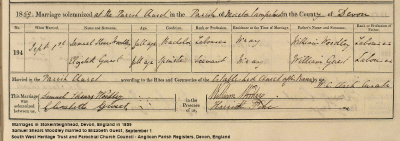 1859. Marriage solemnized at the Parish Church in the Parish of Stokeinteignhead in the County of Devon
No. When Married. Name and Surname. Age. Condition. Rank or Profession. Residence at the Time of Marriage. Father's Name and Surname. Rank or Profession of Father.
194 Sept 1st Samuel Shears Woodley full age Bachelor Labourer William Woodley Labourer
Elizabeth Guest full age Spinster Servant William Guest Labourer
Married in the Parish Church according to the Rites and Ceremonies of the Established Church
This Marriage was solemnized between us, Samuel Shears Woodley in the Presence of us,
Elizabeth Guest Harriett
Marriages in Stokeinteignhead, Devon, England in 1859
Samuel Shears Woodley married to Elizabeth Guest, September 1
South West Heritage Trust and Parochial Church Council - Anglican Parish Registers, Devon, England